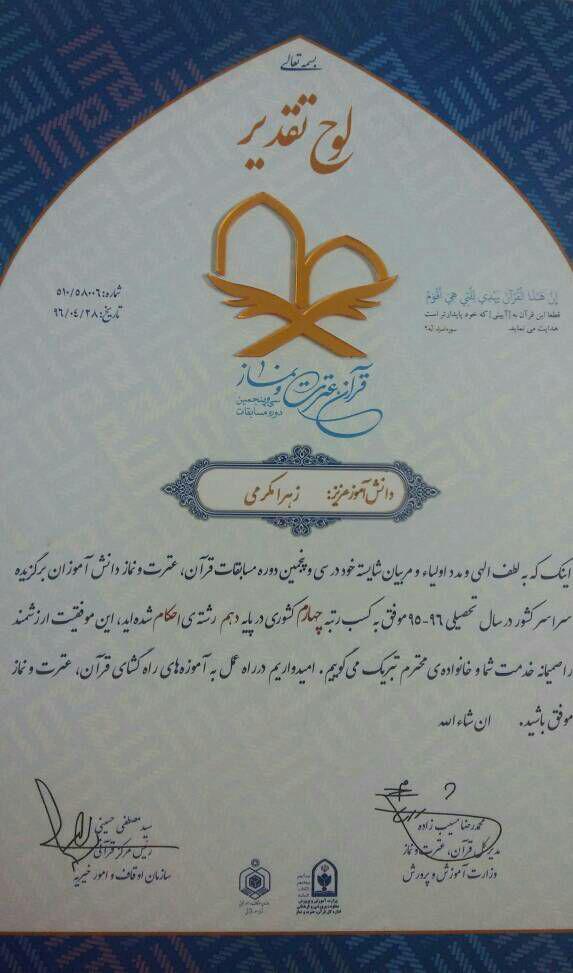 بسمه تعالی
لوح تقدیر
شماره: ۵۱۰/۵۸۰۰۶
تاریخ: ۹۶/۰۴/۲۸
إِنَّ هَذَا الْقُرْآنَ يَهْدِي لِلَّتِي هِيَ أَقْوَمُ
قطعا این قرآن به [آیینی] که خود پایدارتر است
هدایت می نماید.
قرآن، عترت و نماز
سی و پنجمین
دوره مسابقات
دانش آموز عزیز: زهرا مکرمی
اینک که به لطف الهی و مدد اولیاء و مربیان شایسته خود در سی و پنجمین دوره مسابقات قرآن، عترت و نماز دانش آموزان برگزیده
سراسر کشور در سال تحصیلی ۹۶-۹۵ موفق به کسب رتبه چهارم کشوری در پایه دهم رشته ی احکام شده اید، این موفقیت ارزشمند
را صمیمانه خدمت شما و خانواده ی محترم تبریک می گوییم. امیدواریم در راه عمل به آموزه های راه گشای قرآن، عترت و نماز
موفق باشید. ان شاء الله
محمدرضا مسیب زاده
مدیر کل قرآن، عترت و نماز
وزارت آموزش و پرورش
سید مصطفی حسینی
رئیس مرکز قرآنی
سازمان اوقاف و امور خیریه
وزارت آموزش و پرورش
معاونت پرورشی و فرهنگی
اداره کل قرآن، عترت و نماز